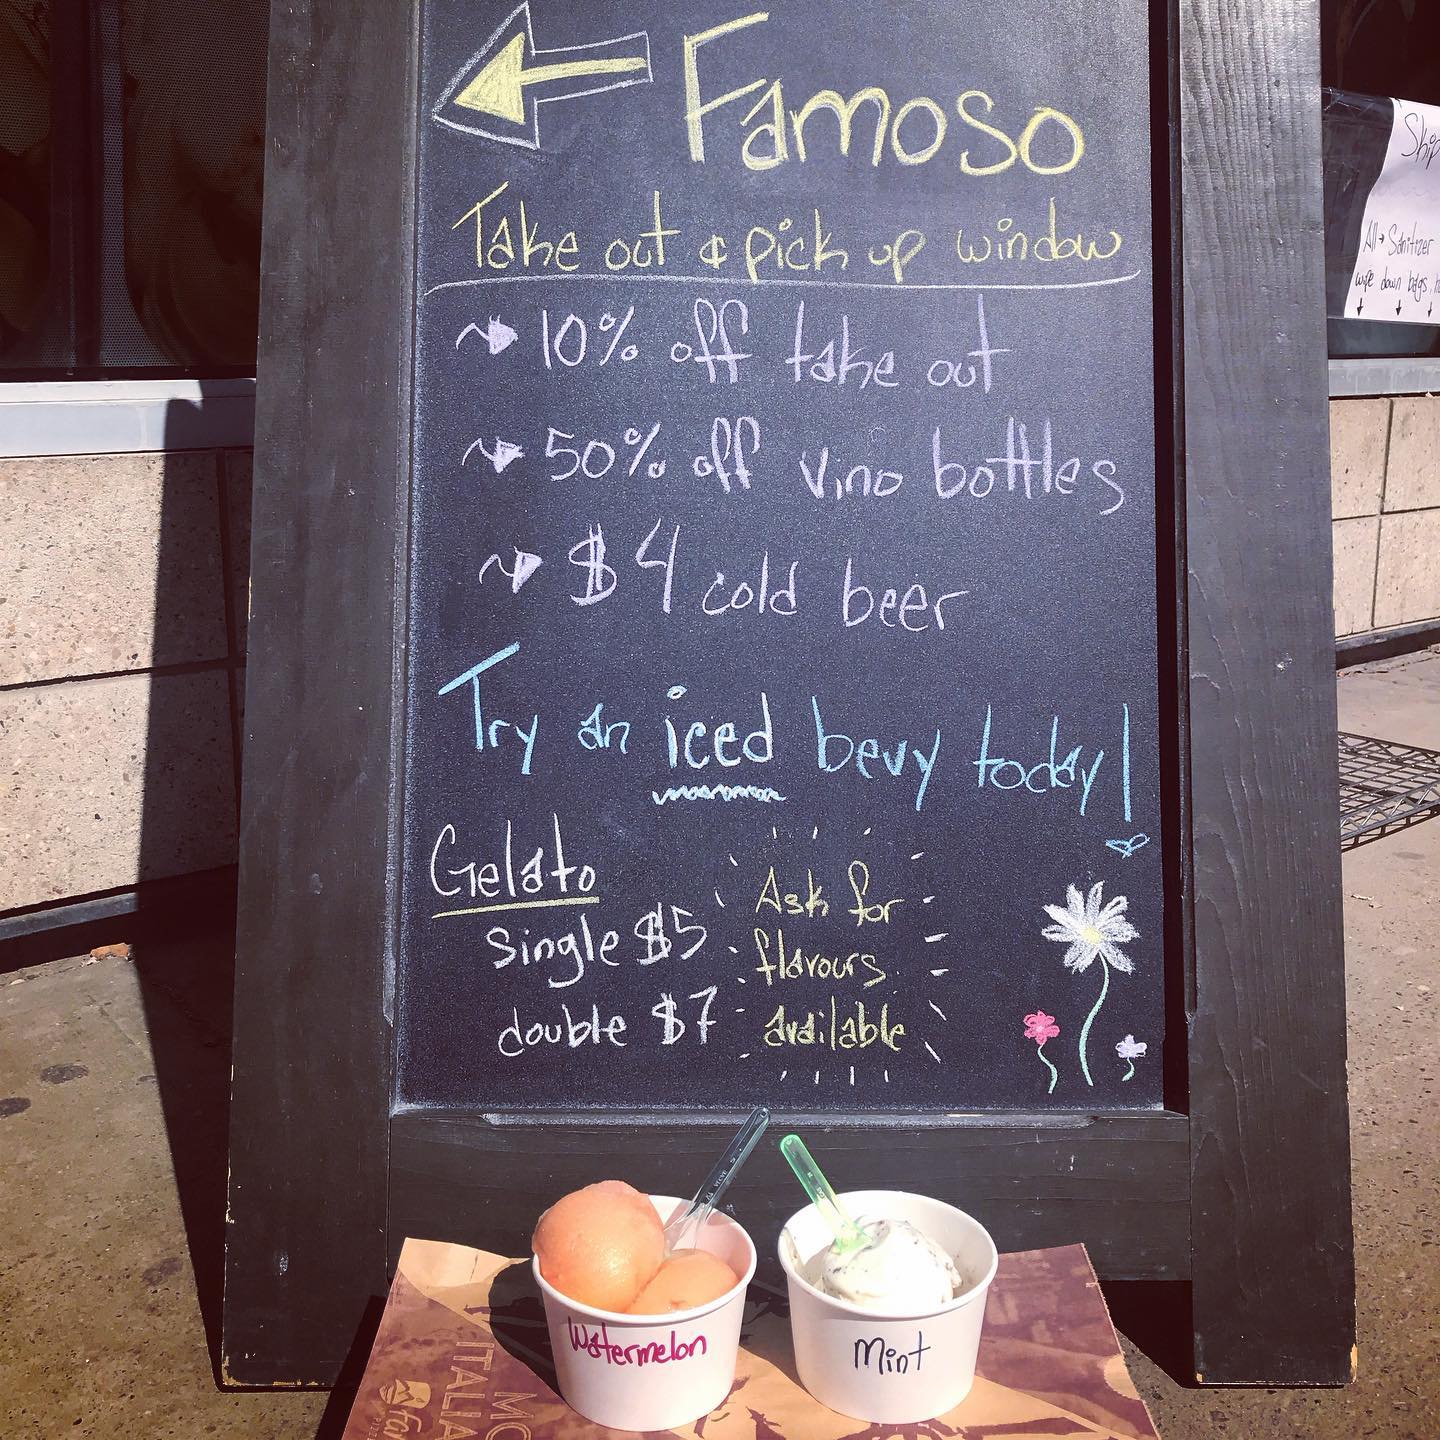 Famoso
Take out & pick up window
10% off take out
50% off vino bottles
$4 cold beer
Try an iced bevy today!
Gelato
single $5
double $7
Ask for
flavours
available
Skip
All → Sanitizer
wipe down bags,
Watermelon
Mint
ITALIA
MO